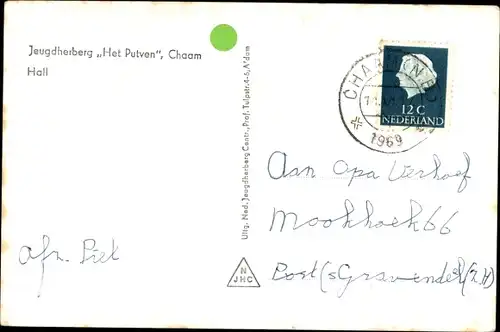 Jeugdherberg „Het Putven", Chaam
Hall
afz. Piet
Uitg. Ned. Jeugdherberg Centr., Prof. Tulpstr. 4-6, A'dam
N
JHC
CHAAM
1969
12 C
NEDERLAND
Aan Opa Lierhoef
Mookhoek 66
Post ('s Gravendeel (Z.H)